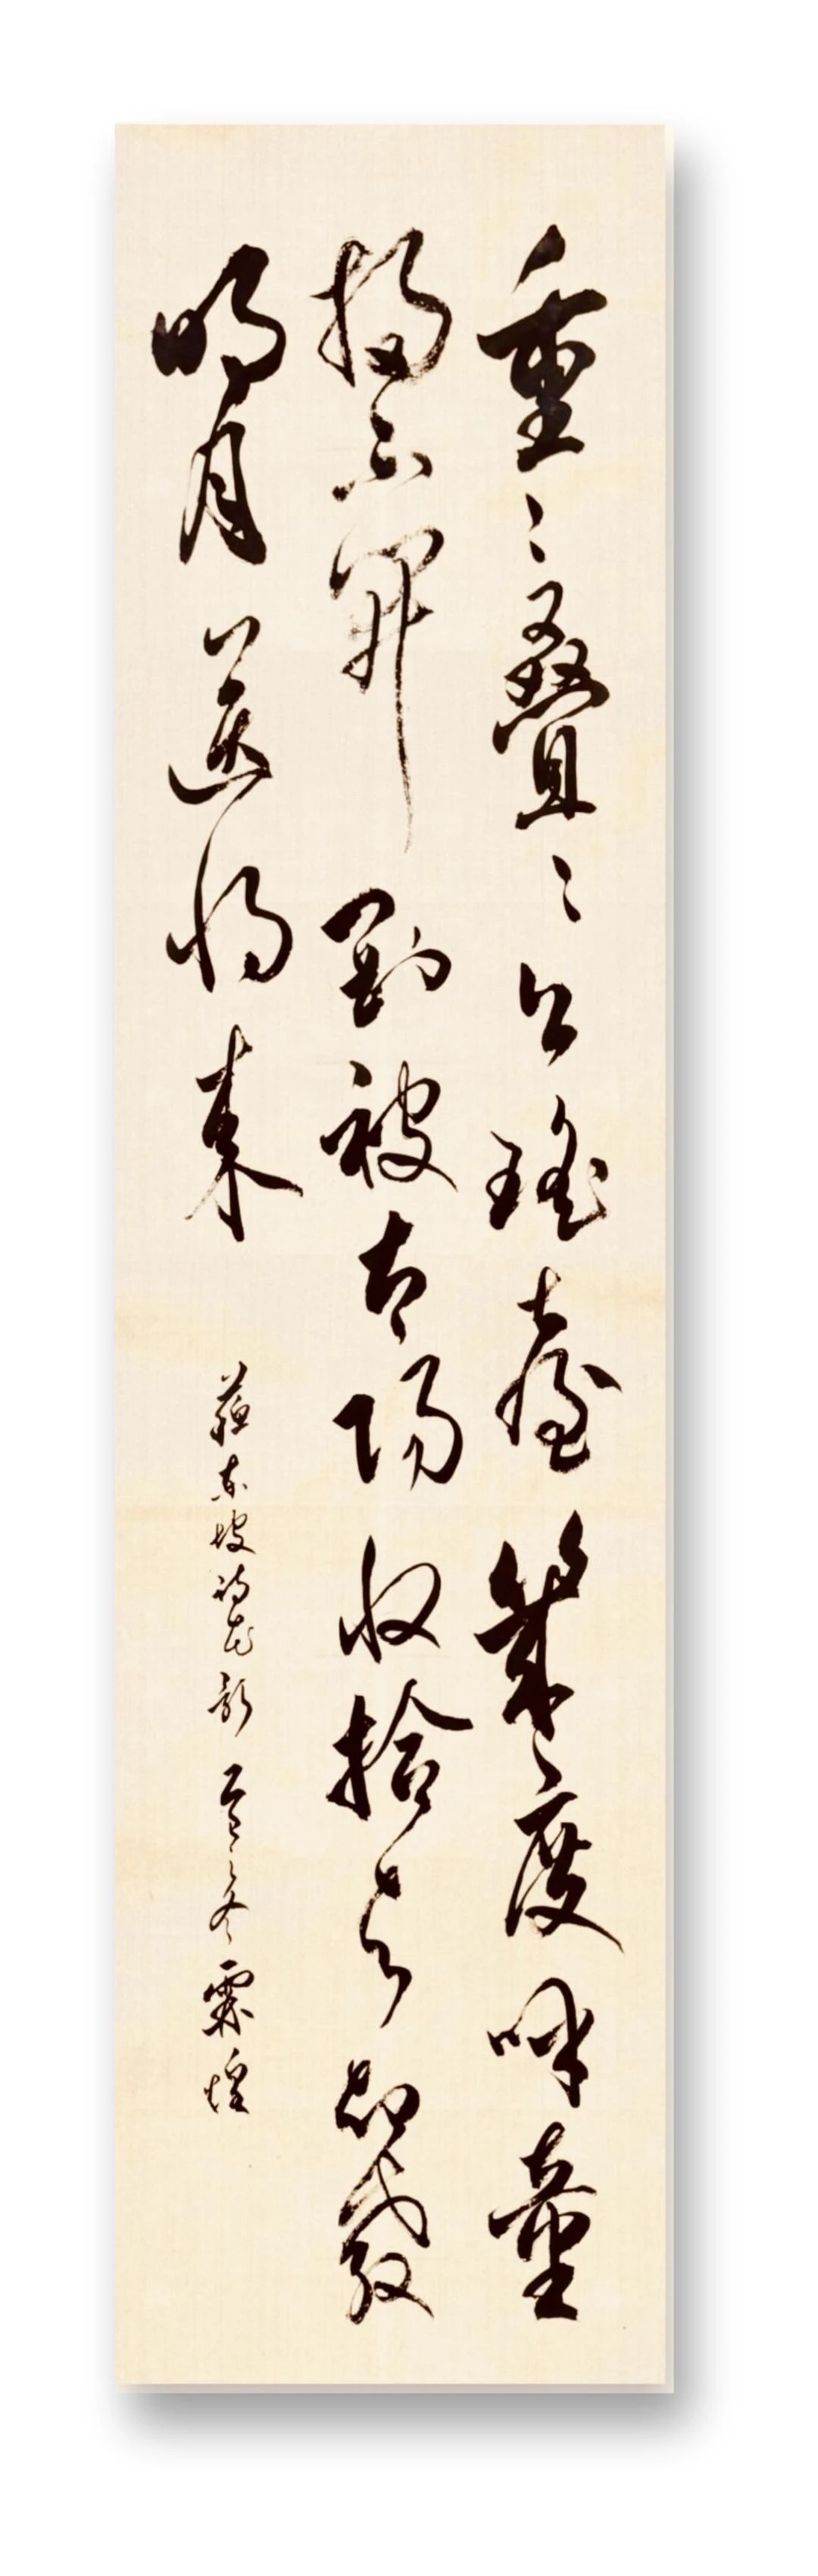 重〻疊〻上瑤臺幾度呼童
掃不開剛被太陽收拾去却教
明月送將來
蘇東坡詩花影 之冬 霖煌